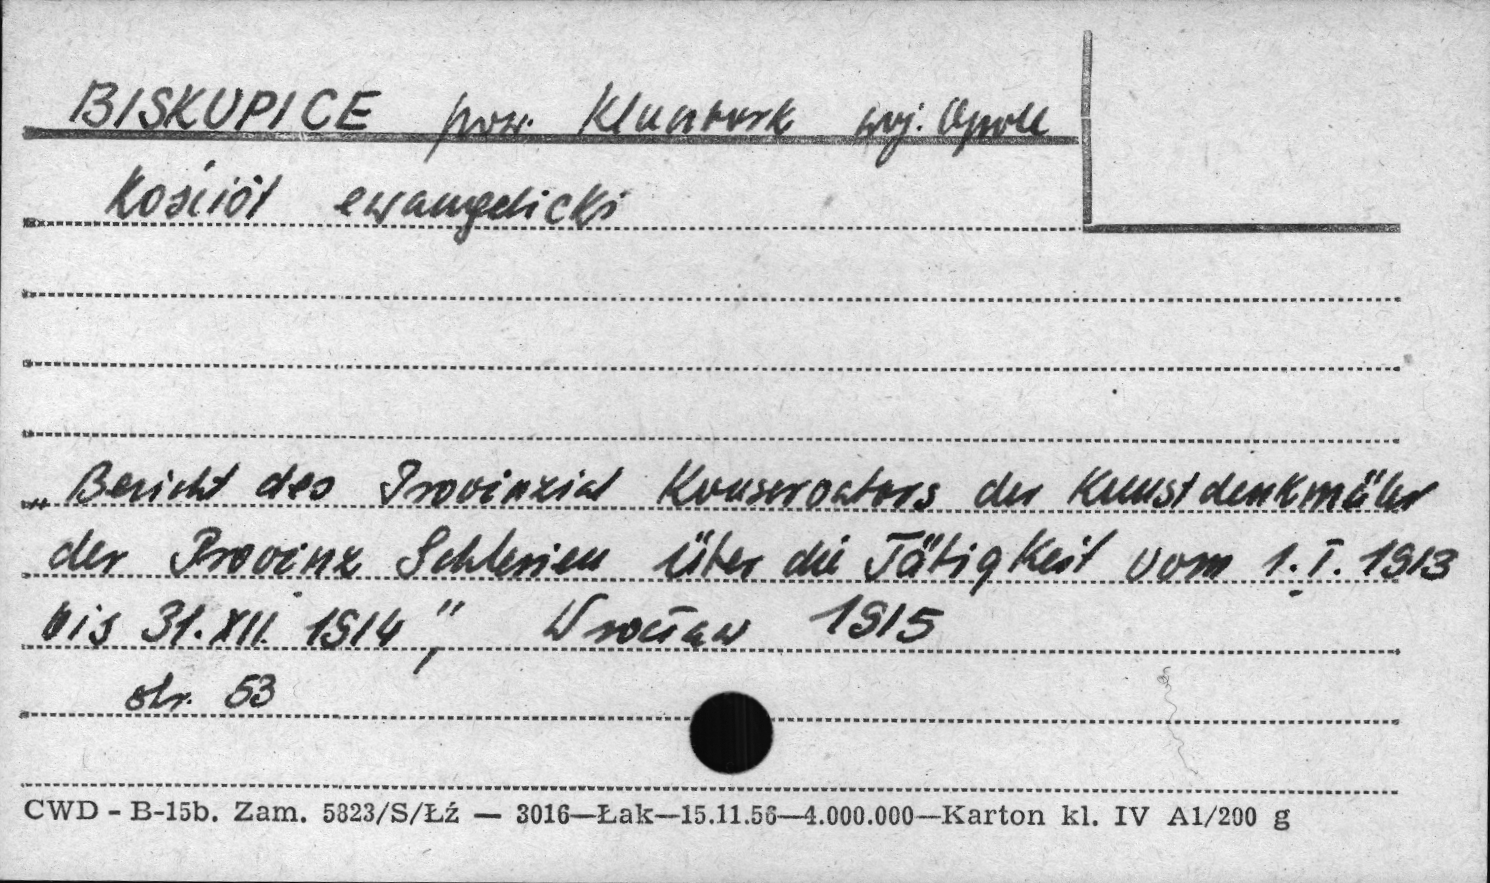 BISKUPICE pow. Kluczbork woj. Opole
Kościół ewangelicki
„Bericht des Provinzial Konservators der Kunstdenkmäler
der Provinz Schlesien über die Tätigkeit vom 1.I.1913
bis 31.XII.1914", Wrocław 1915
str. 53
CWD - B-15b. Zam. 5823/S/Łź — 3016—Łak—15.11.56—4.000.000—Karton kl. IV A1/200 g